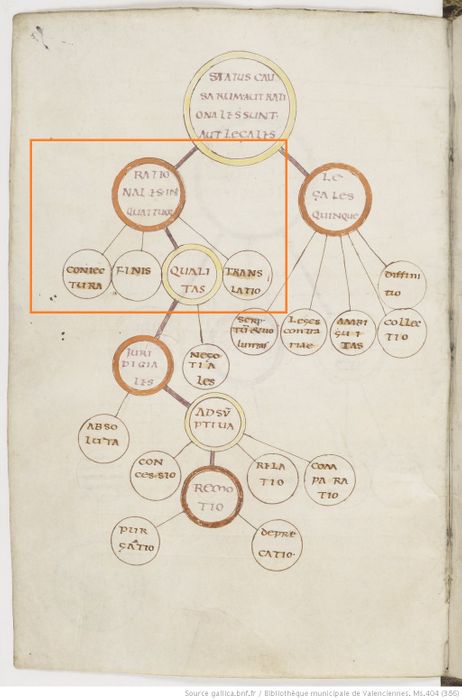 STATUS CAU
SARUM AUT RATI
ONALES SUNT·
AUT LEGALES
RATIO
NALES IN
QUATTUOR
LE
GALES
QUINQUE
CONIEC
TURA
FINIS
QUALI
TAS
TRANS
LATIO
DIFFINI
TIO
LEGES
CONTRA
RIAE
AMBI
GUI
TAS
COLLEC
TIO
IURI
DICIA
LES
NEGO
TIA
LES
ABSO
LUTA
ADSŪ
PTIVA
CON
CESSIO
REMO
TIO
RELA
TIO
COM
PARA
TIO
PUR
GATIO
DEPRE
CATIO·
Source gallica.bnf.fr / Bibliothèque municipale de Valenciennes. Ms.404 (386)